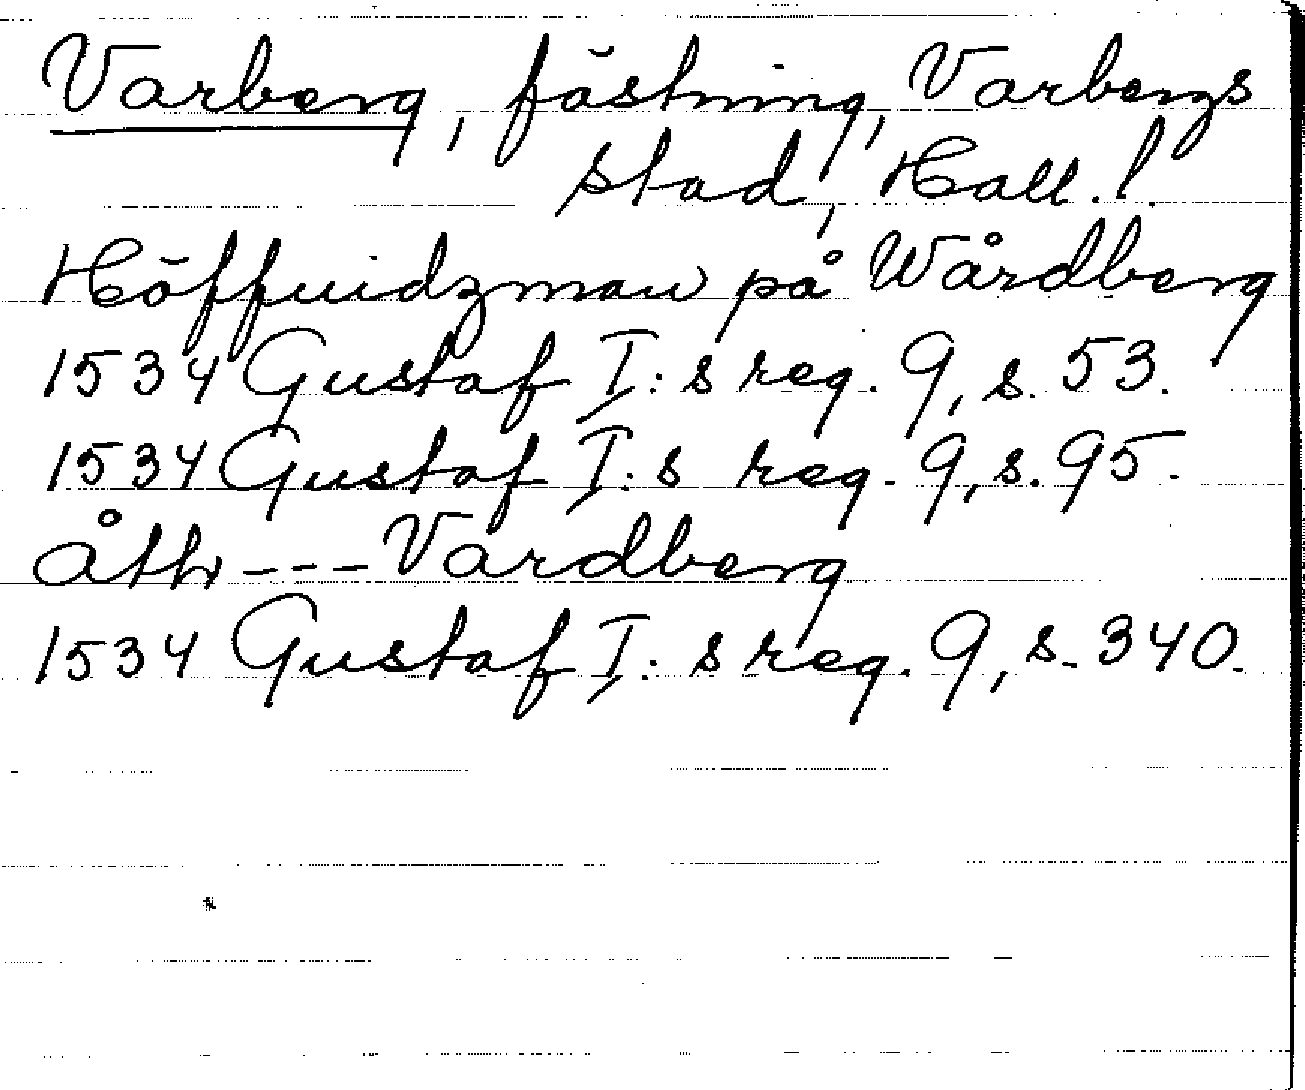 Varberg, fästning, Varbergs
stad, Hall. l.
Höffuidzman på Wårdberg
1534 Gustaf I:s reg. 9, s. 53.
1534 Gustaf I:s reg. 9, s. 95.
åth --- Vardberg
1534 Gustaf I:s reg. 9, s. 340.